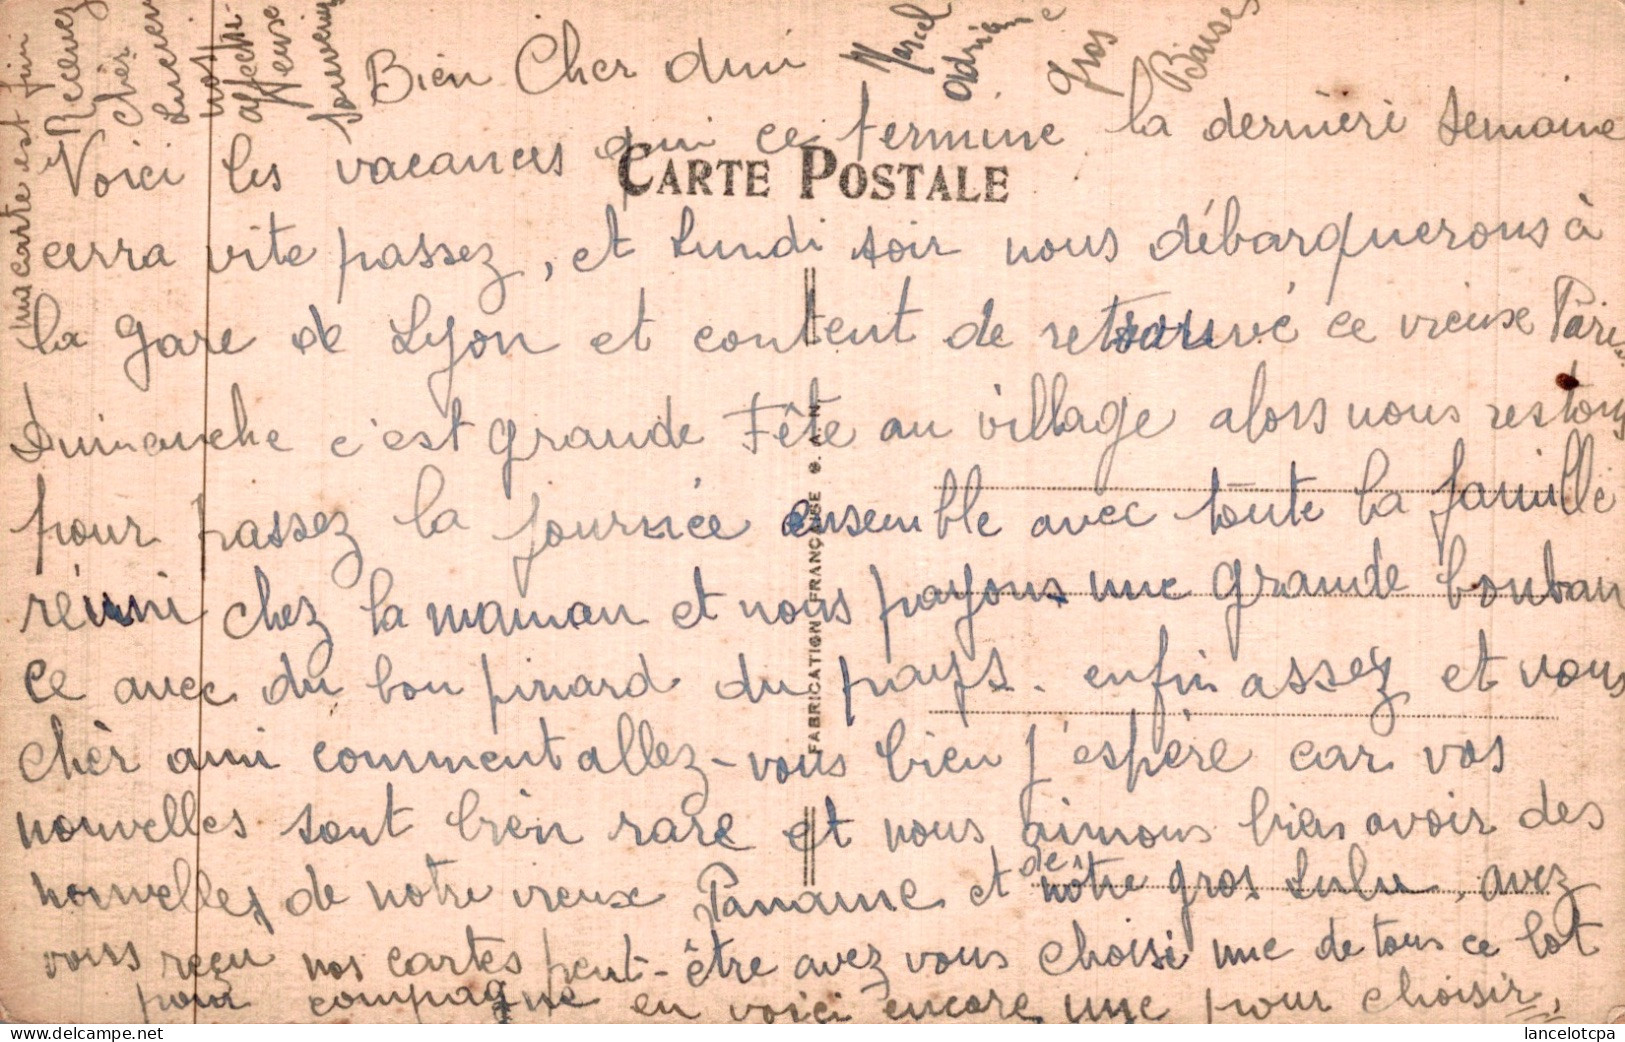 Bien Cher Ami
Voici les vacances qui ce termine la dernière semaine
cerra vite passez, et Lundi soir nous débarquerons à
la gare de Lyon et content de retrouvé ce vieux Paris.
Dimanche c'est grande Fête au village alors nous restons
pour passez la journée ensemble avec toute la famille
réuni chez la maman et nous payons une grande bouban
ce avec du bon pinard du pays. enfin assez et vous
chèr ami comment allez-vous bien j'espère car vos
nouvelles sont bien rare et nous aimons bien avoir des
nouvelles de notre vieux Paname et de nôtre gros Lulu. avez
vous reçu nos cartes peut-être avez vous choisi une de tous ce lot
pour compagne en voici encore une pour choisir,
ma carte est fini
Recevez
chèr
Lucien
nos
affecti-
veuse
souvenirs
Marcel
Adriane
gros
Baises
CARTE POSTALE
FABRICATION FRANÇAISE S.A.N.
delcampe.net
lancelotcpa